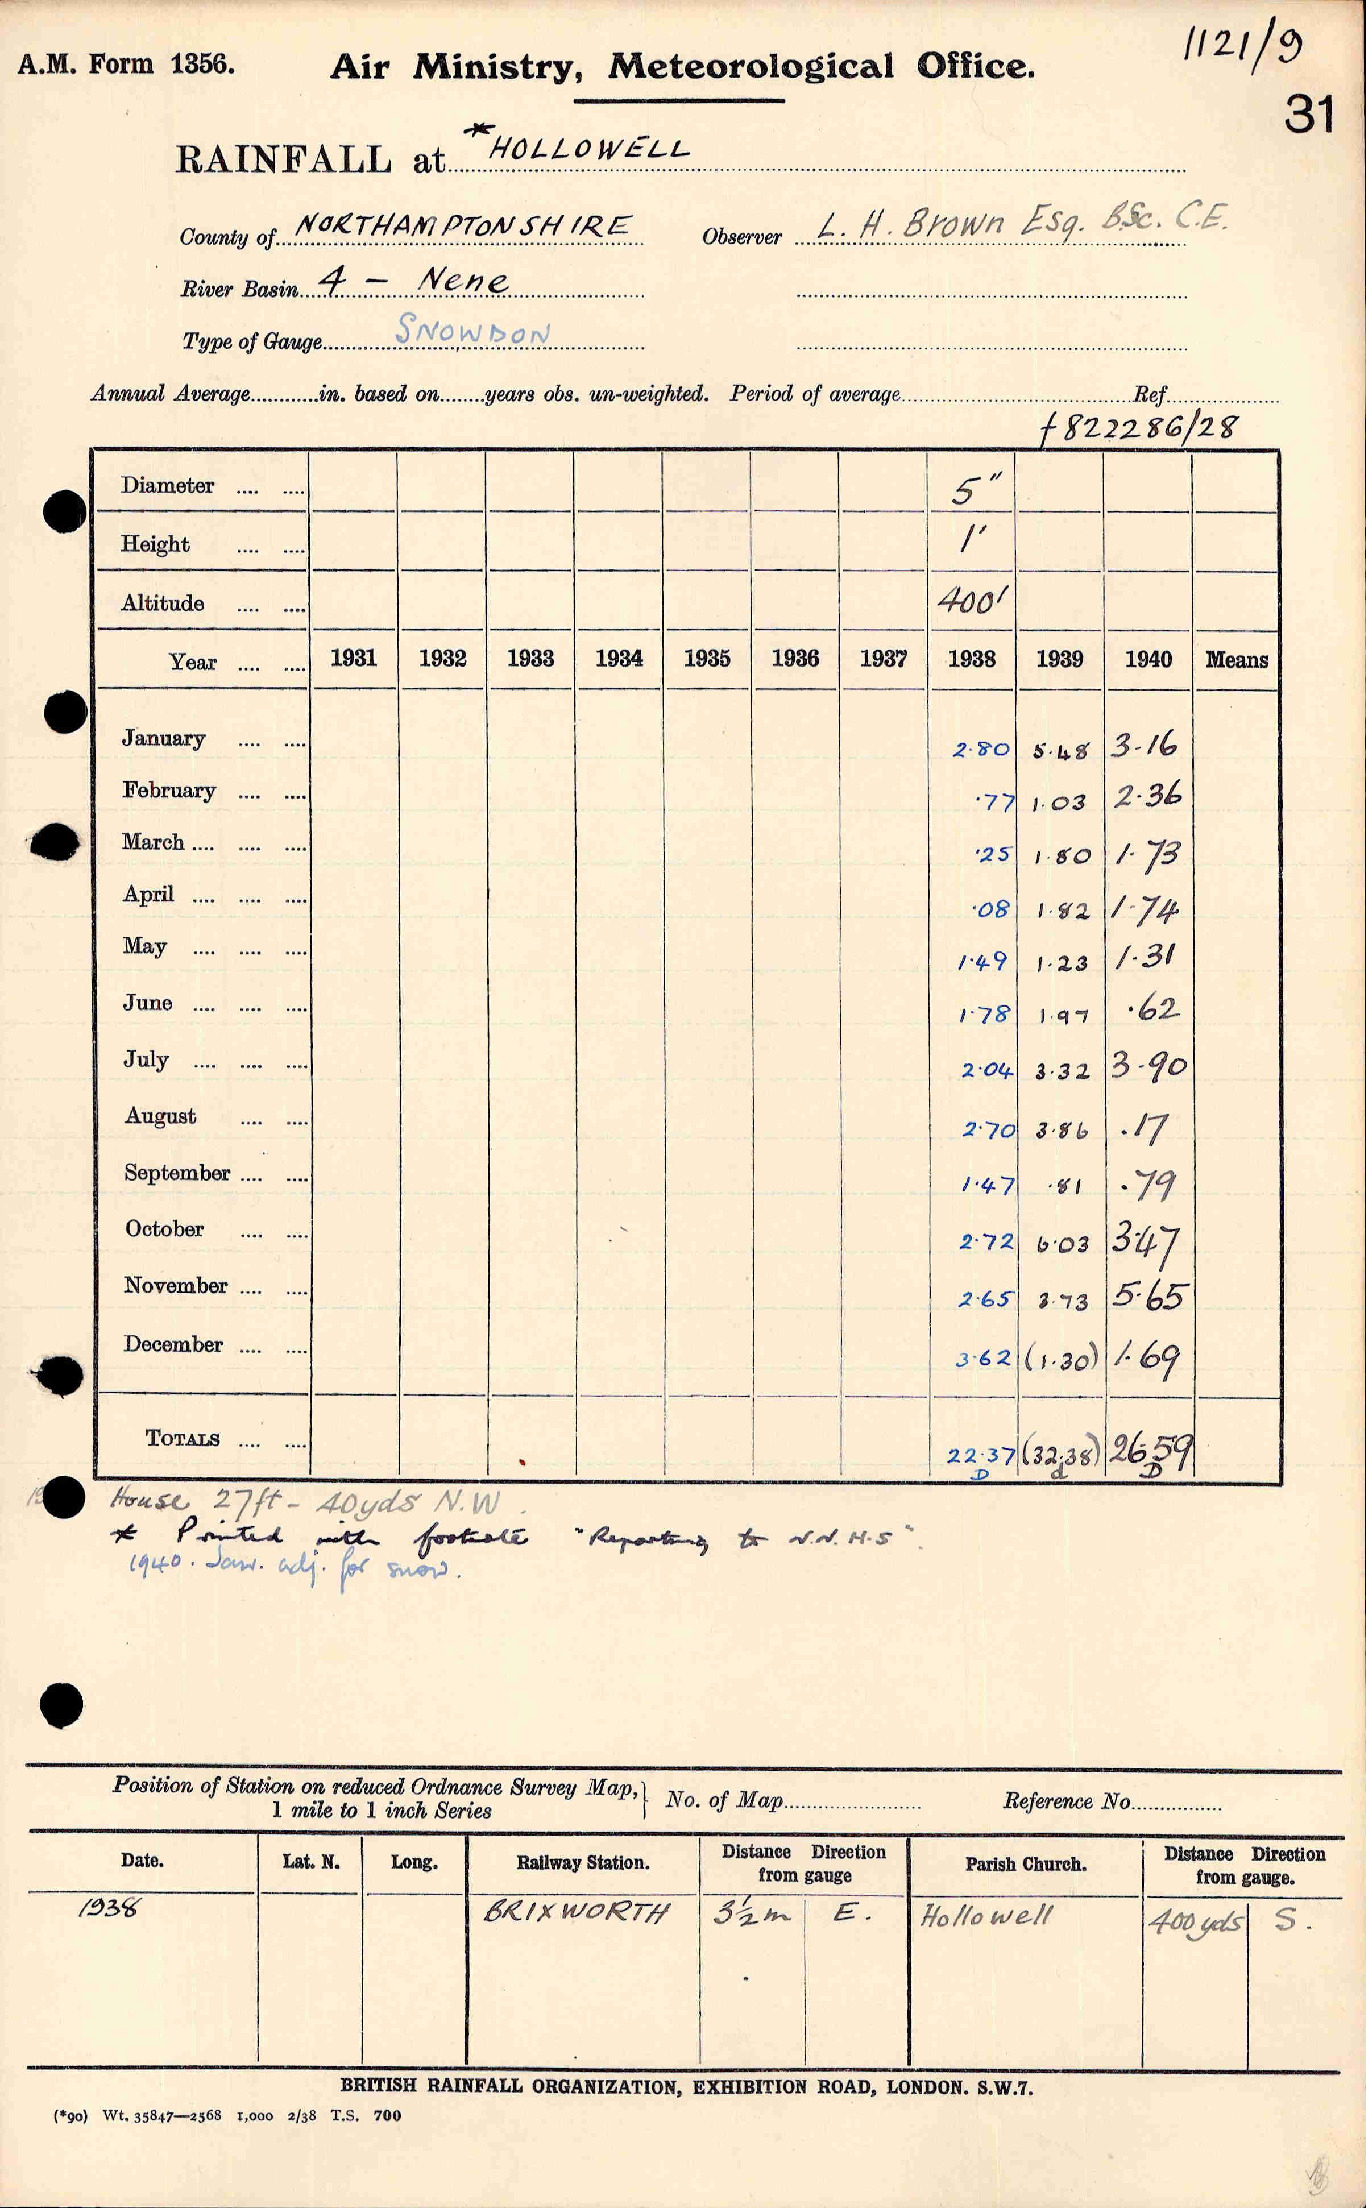 1121/9
A.M. Form 1356. Air Ministry, Meteorological Office.
31
RAINFALL at *HOLLOWELL
County of NORTHAMPTONSHIRE Observer L. H. Brown Esq. B.Sc. C.E.
River Basin 4 - Nene
Type of Gauge SNOWDON
Annual Average............in. based on........years obs. un-weighted. Period of average................Ref................
f 822286/28
Diameter .... .... 5"
Height .... .... 1'
Altitude .... .... 400'
Year .... .... 1931 1932 1933 1934 1935 1936 1937 1938 1939 1940 Means
January .... .... 2.80 5.48 3.16
February .... .... .77 1.03 2.36
March .... .... .... .25 1.80 1.73
April .... .... .... .08 1.82 1.74
May .... .... .... 1.49 1.23 1.31
June .... .... .... 1.78 1.97 .62
July .... .... .... 2.04 3.32 3.90
August .... .... 2.70 3.86 .17
September .... .... 1.47 .81 .79
October .... .... 2.72 6.03 3.47
November .... .... 2.65 3.73 5.65
December .... .... 3.62 (1.30) 1.69
TOTALS .... .... 22.37 (32.38) 26.59
D d D
House 27ft - 40yds N.W.
* Printed with footnote "Reporting to N.N.H.S".
1940. Jan. adj. for snow.
Position of Station on reduced Ordnance Survey Map,} No. of Map........................ Reference No................
1 mile to 1 inch Series
Date. Lat. N. Long. Railway Station. Distance Direction from gauge Parish Church. Distance Direction from gauge.
1938 BRIXWORTH 3½m E. Hollowell 400yds S.
BRITISH RAINFALL ORGANIZATION, EXHIBITION ROAD, LONDON. S.W.7.
(*90) Wt. 35847—2568 1,000 2/38 T.S. 700